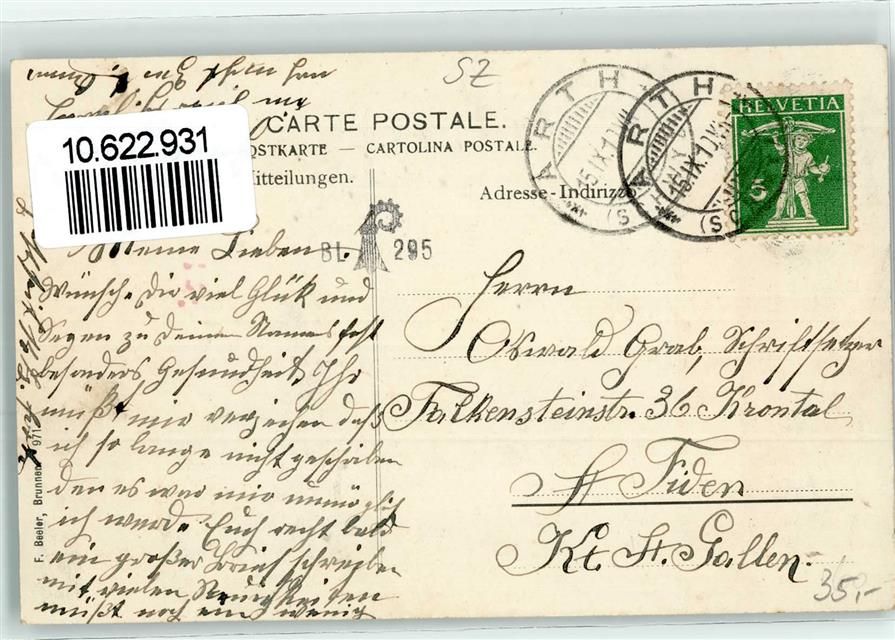 SZ
CARTE POSTALE.
POSTKARTE — CARTOLINA POSTALE.
Mitteilungen.
Adresse-Indirizzo
10.622.931
ARTH
15.IX.1
(SCHWYZ)
ARTH
15.IX.1
(SCHWYZ)
HELVETIA
5
BL 295
Meine Lieben.
Wünsch. Dir viel Glück und
Segen zu Deinem Namensfest
besonders Gesundheit. Ihr
müßt mir verzeihen daß
ich so lange nicht geschrieben
den es war mir unmöglich
ich werde Euch recht bald
ein großer Brief schreiben
mit vielen Neuigkeiten
müßt noch ein wenig
Herrn
Oswald Grab, Schriftsetzer
Falkensteinstr. 36 Krontal
St Fiden
Kt. St. Gallen.
F. Beeler, Brunnen 971
35.-